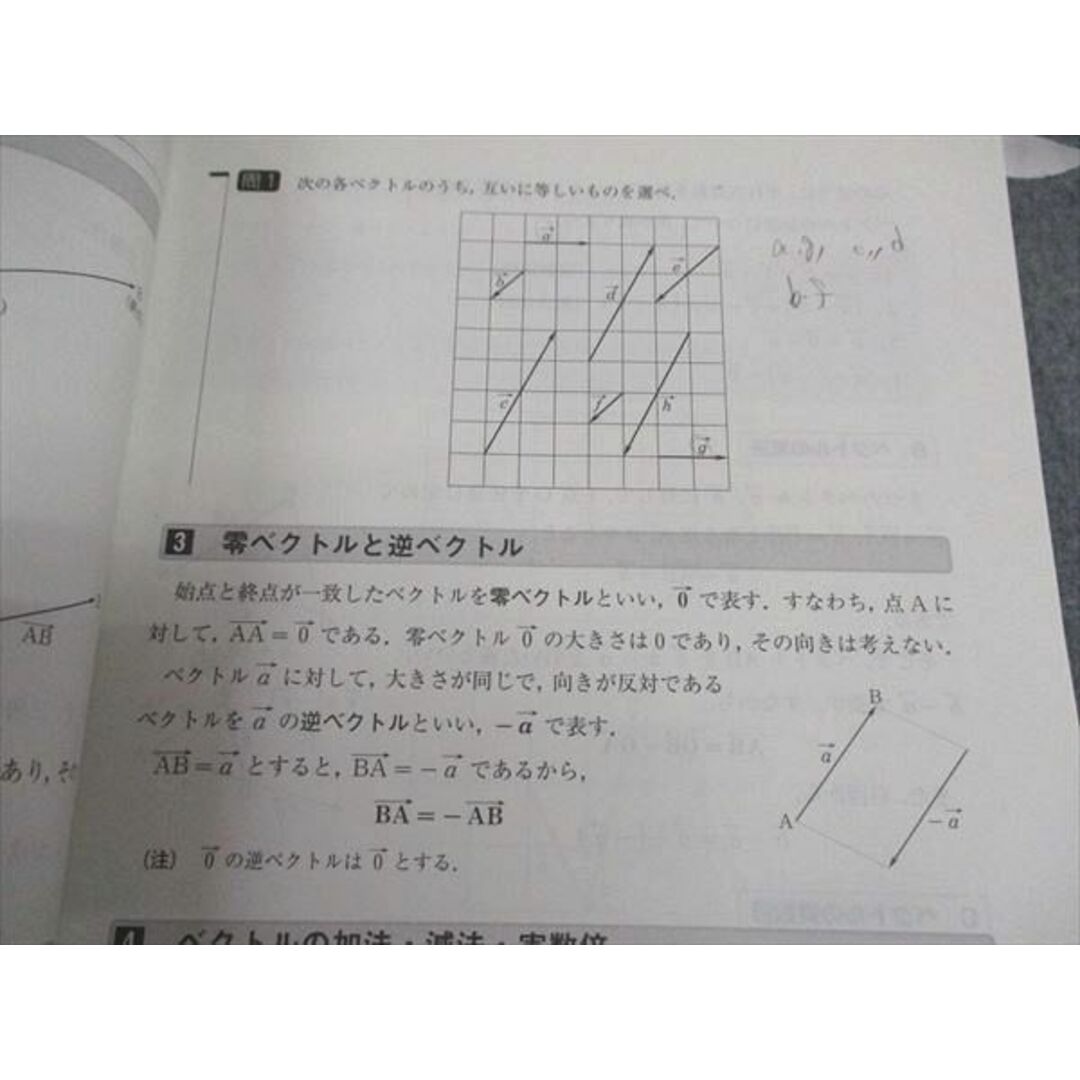 問1 次の各ベクトルのうち, 互いに等しいものを選べ.
a
b
e
d
c
f
h
g
a.g, c,,d
b.f
3 零ベクトルと逆ベクトル
始点と終点が一致したベクトルを零ベクトルといい, 0 で表す. すなわち, 点 A に
対して, AA = 0 である. 零ベクトル 0 の大きさは 0 であり, その向きは考えない.
ベクトル a に対して, 大きさが同じで, 向きが反対である
ベクトルを a の逆ベクトルといい, −a で表す.
AB = a とすると, BA = −a であるから,
BA = −AB
(注) 0 の逆ベクトルは 0 とする.
B
a
A
−a
4 ベクトルの加法・減法・実数倍
AB
あり, そ